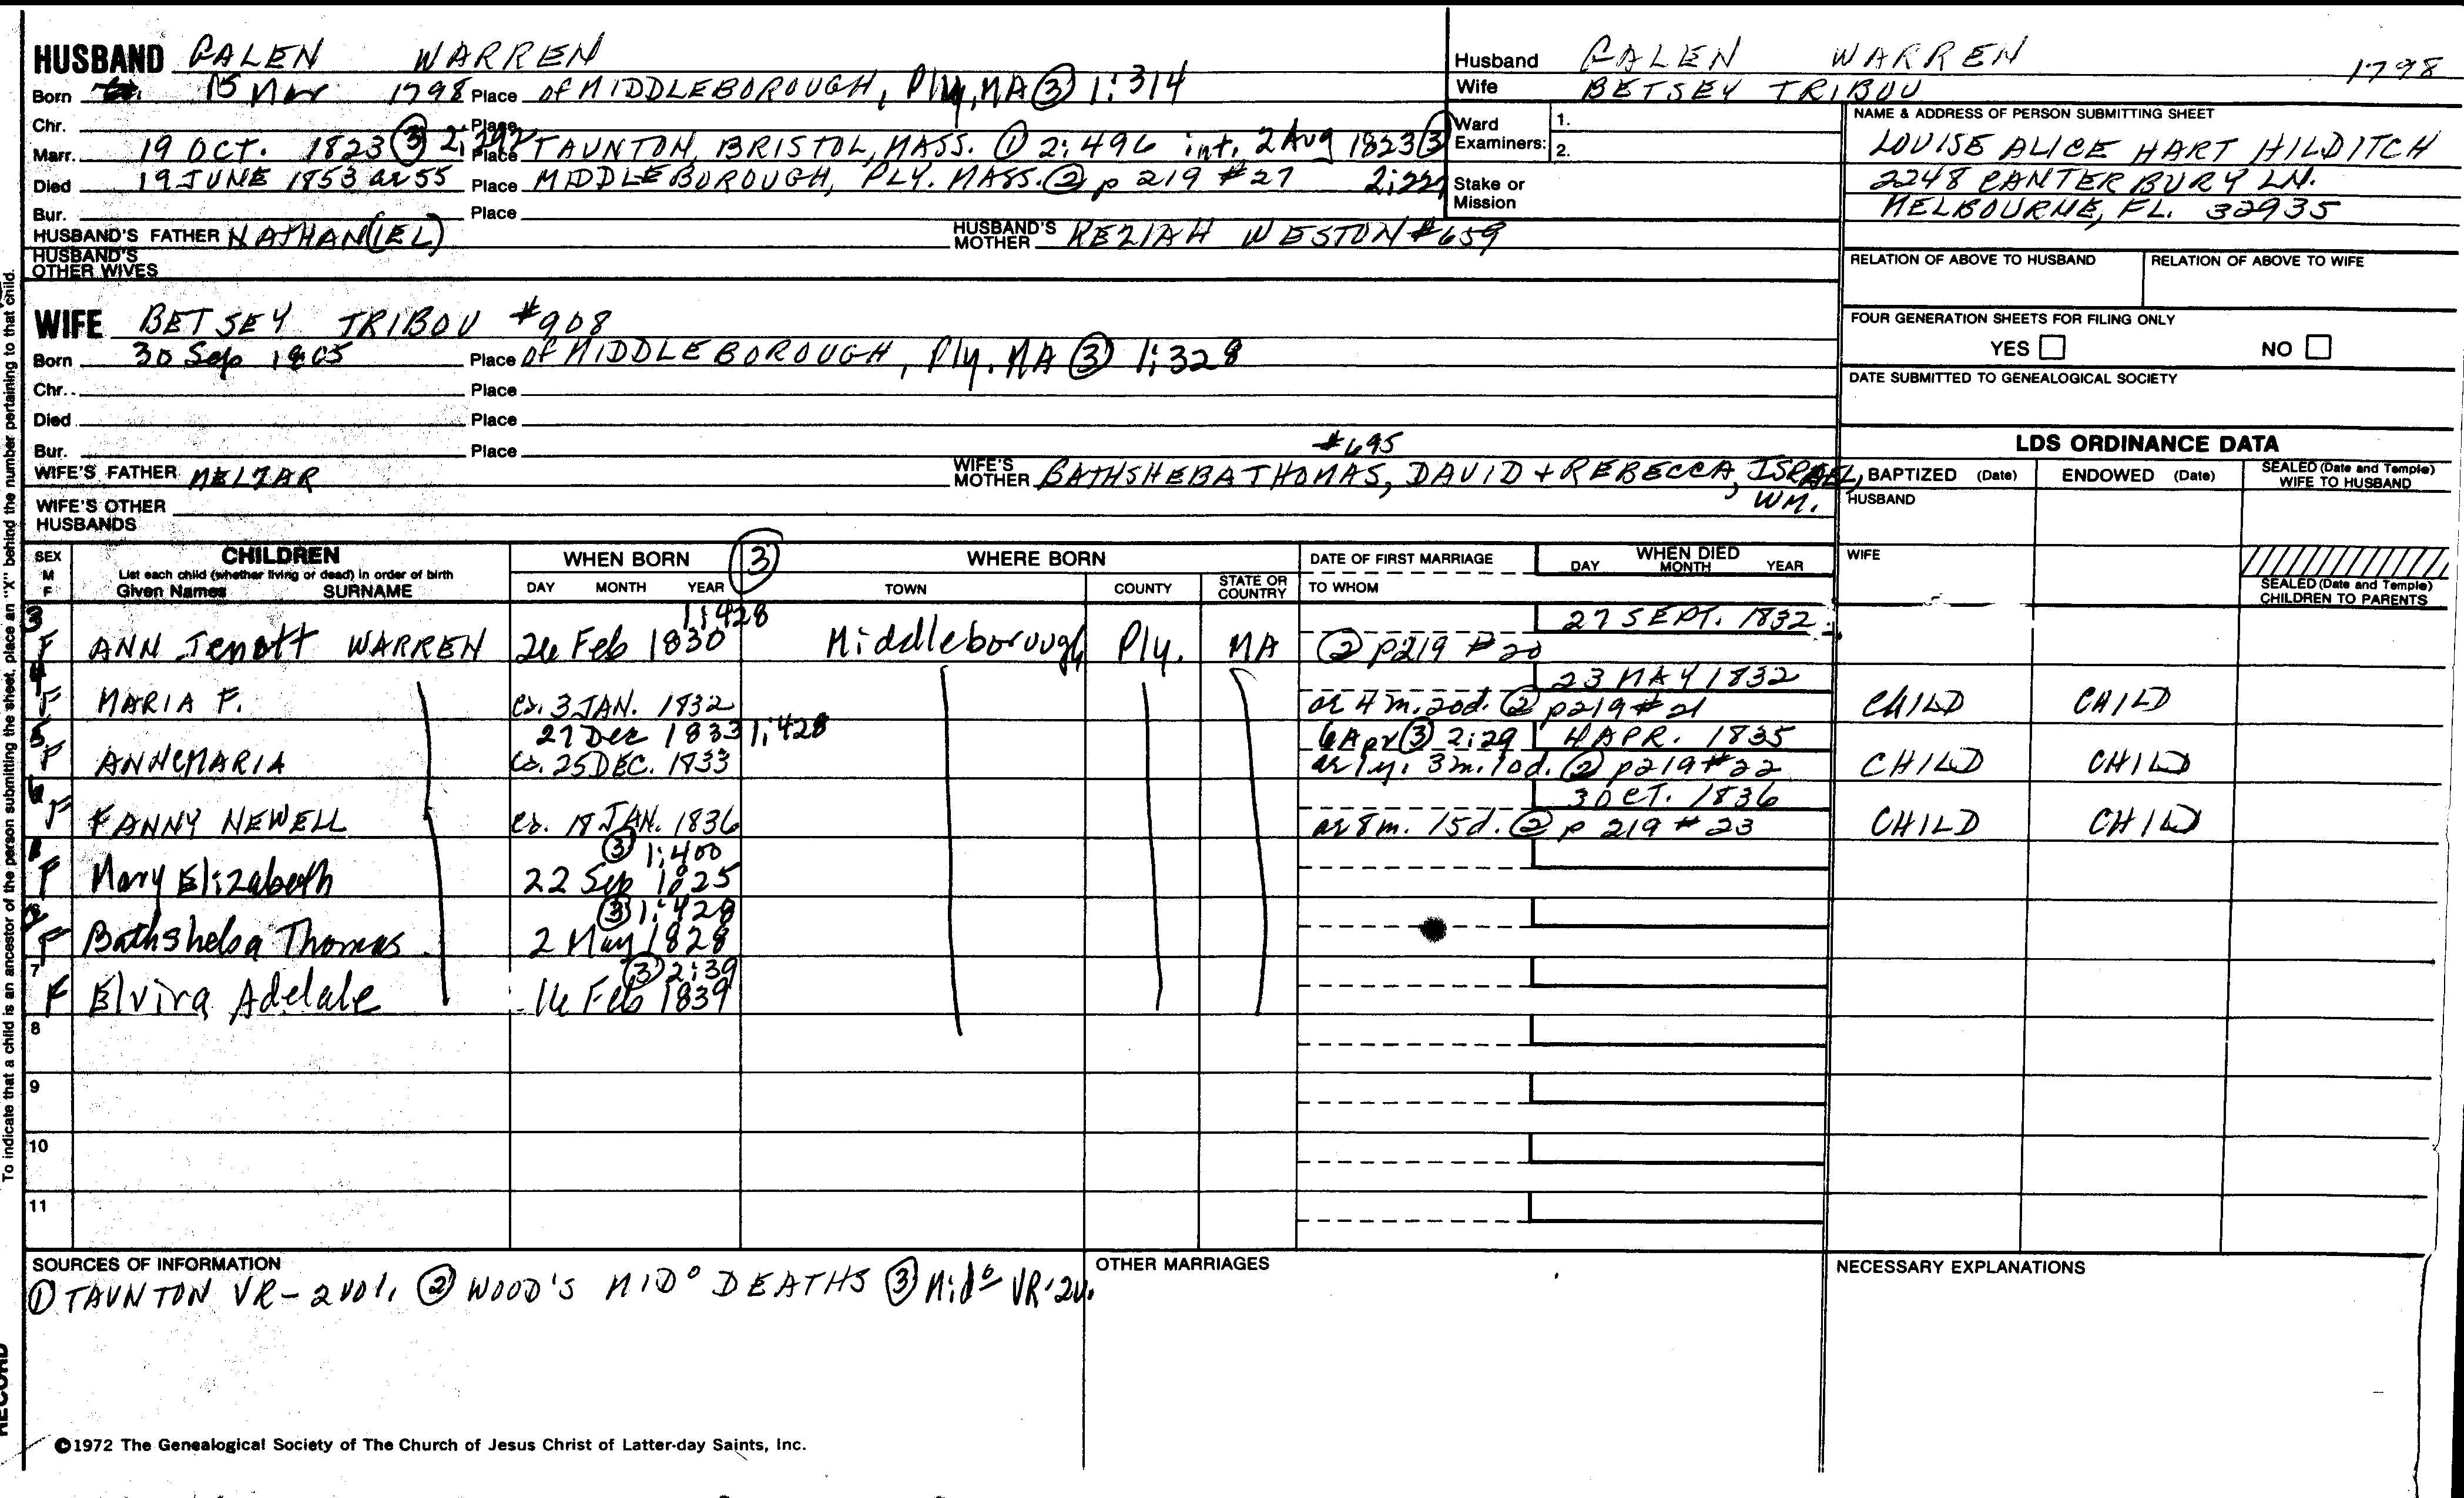 HUSBAND GALEN WARREN
Born 15 Mar 1798 Place of MIDDLEBOROUGH, Ply, MA ③ 1:314
Chr. Place
Marr. 19 OCT. 1823 ③ 2:292 Place TAUNTON, BRISTOL, MASS. ① 2:496 int. 2 Aug 1823 ③
Died 19 JUNE 1853 ae 55 Place MIDDLEBOROUGH, PLY. MASS. ② p 219 #27 2:229
Bur. Place
HUSBAND'S FATHER NATHAN(IEL) HUSBAND'S MOTHER KEZIAH WESTON #659
HUSBAND'S OTHER WIVES
Husband GALEN WARREN 1798
Wife BETSEY TRIBOU
Ward Examiners: 1.
2.
Stake or Mission
NAME & ADDRESS OF PERSON SUBMITTING SHEET
LOUISE ALICE HART HILDITCH
2248 CANTERBURY LN.
MELBOURNE, FL. 32935
RELATION OF ABOVE TO HUSBAND RELATION OF ABOVE TO WIFE
FOUR GENERATION SHEETS FOR FILING ONLY
YES NO
DATE SUBMITTED TO GENEALOGICAL SOCIETY
WIFE BETSEY TRIBOU #908
Born 30 Sep 1805 Place of MIDDLEBOROUGH, Ply. MA ③ 1:328
Chr. Place
Died Place
Bur. Place
#695
WIFE'S FATHER MELZAR WIFE'S MOTHER BATHSHEBA THOMAS, DAVID + REBECCA, ISRAEL,
WM.
WIFE'S OTHER HUSBANDS
LDS ORDINANCE DATA
BAPTIZED (Date) ENDOWED (Date) SEALED (Date and Temple) WIFE TO HUSBAND
HUSBAND
WIFE
SEALED (Date and Temple) CHILDREN TO PARENTS
SEX M F CHILDREN WHEN BORN ③ WHERE BORN DATE OF FIRST MARRIAGE WHEN DIED
List each child (whether living or dead) in order of birth
Given Names SURNAME DAY MONTH YEAR TOWN COUNTY STATE OR COUNTRY TO WHOM DAY MONTH YEAR
3 1:428 27 SEPT. 1832
F ANN Jenott WARREN 26 Feb 1830 Middleborough Ply. MA ② p219 #20
4 23 MAY 1832
F MARIA F. ca. 3 JAN. 1832 ae 4 m. 20d. ② p219 #21 CHILD CHILD
5 27 Dec 1833 1:428 6 Apr ③ 2:29 4 APR. 1835
F ANNEMARIA ca. 25 DEC. 1833 ae 1 y. 3 m. 10d. ② p219 #22 CHILD CHILD
6 3 OCT. 1836
F FANNY NEWELL ca. 18 JAN. 1836 ae 8 m. 15d. ② p 219 #23 CHILD CHILD
1 ③ 1:400
F Mary Elizabeth 22 Sep 1825
2 ③ 1:428
F Bathsheba Thomas 2 May 1828
7 ③ 2:39
F Elvira Adelale 16 Feb 1839
8
9
10
11
SOURCES OF INFORMATION
① TAUNTON VR- 2 vol. ② WOOD'S MIDº DEATHS ③ Midº VR-2v.
OTHER MARRIAGES
NECESSARY EXPLANATIONS
©1972 The Genealogical Society of The Church of Jesus Christ of Latter-day Saints, Inc.
To indicate that a child is an ancestor of the person submitting the sheet, place an "X" behind the number pertaining to that child.
RECORD